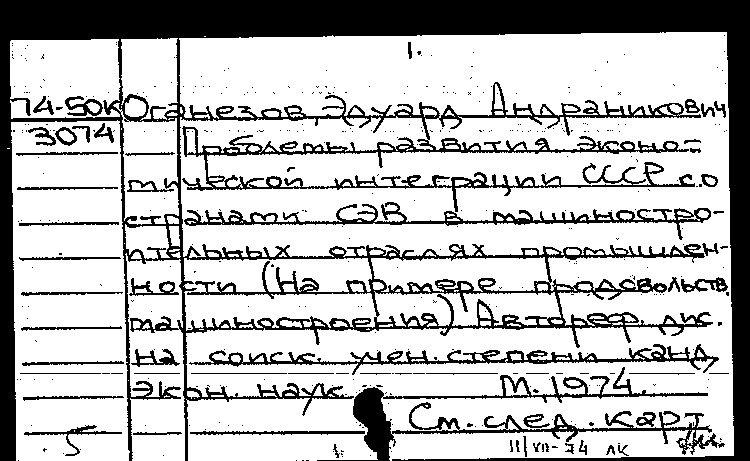 1.
74-50к Оганезов, Эдуард Андраникович
3074 Проблемы развития эконо-
мической интеграции СССР со
странами СЭВ в машиностро-
ительных отраслях промышлен-
ности (На примере продовольств.
машиностроения) Автореф. дис.
на соиск. учен. степени канд.
экон. наук. М., 1974.
См. след. карт.
5 11/VII-74 ЛК